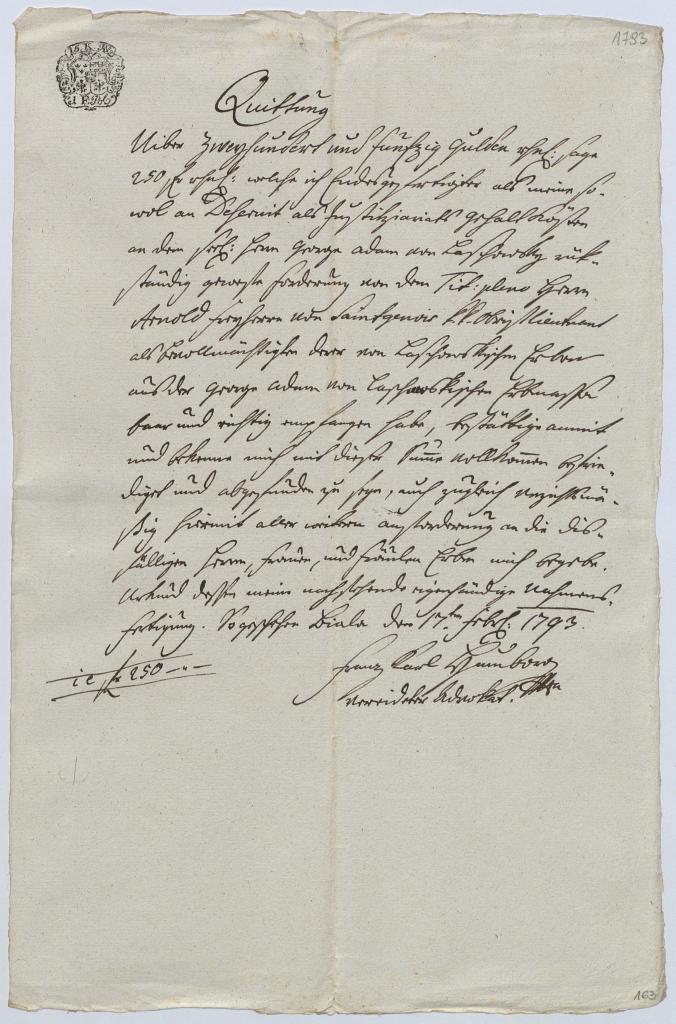 1793
15 K
Quittung
Uiber Zweyhundert und funfzig Gulden rhnl: sage
250 fr rhnl: welche ich Endesgefertigter als meine so-
wol an Deservit als Justitziariats Gehalt Kösten
an dem seel: Herrn George Adam von Laschowsky rük-
ständig geweste Forderung von dem Tit: pleno Herrn
Arnold Freyherrn von Saintgenois k.k. Obristlieutnant
als bevollmächtigten derer von Laschowskischen Erben
aus der George Adam von Laschowskischen Erbmassa
baar und richtig empfangen habe, bestättige anmit
und bekenne mich mit dieser Summe vollkommen befrie-
diget und abgefunden zu seyn, auch zugleich verzichtmä-
ßig hiermit aller weitern Anforderung an die dis-
fälligen Herrn, Frauen, und Fräulen Erben mich begebe.
Urkund dessen meine nachstehende eigenhändige Nahmens-
Fertigung. So geschehen Biala den 17ten Febr: 1793.
i e fr 250 -"-
Franz Karl
vereideter Advokat.
163